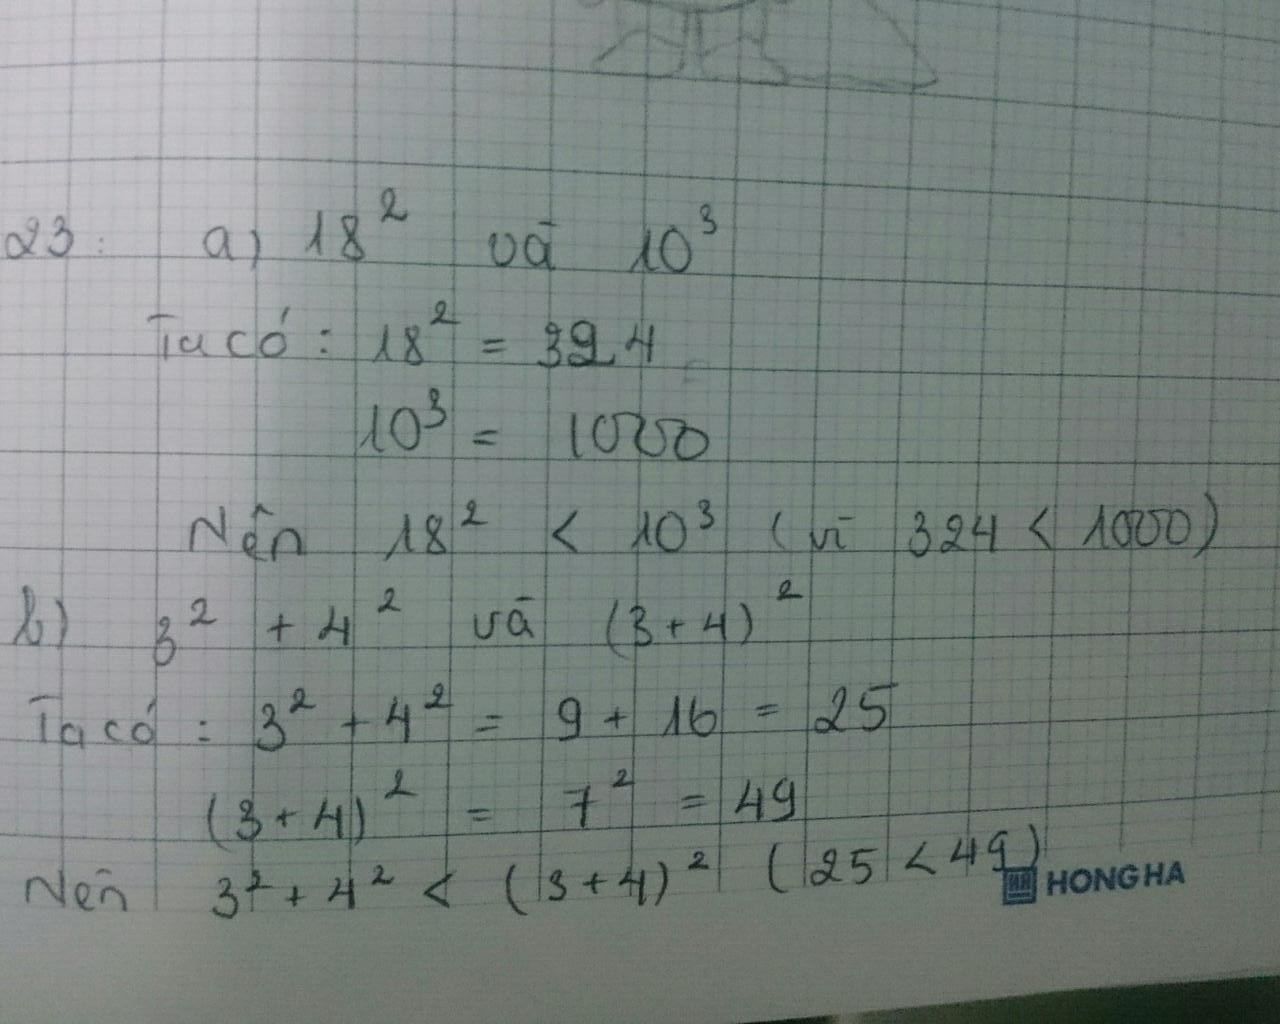 23: a) 18² và 10³
Ta có: 18² = 324
10³ = 1000
Nên 18² < 10³ (vì 324 < 1000)
b) 3² + 4² và (3+4)²
Ta có: 3² + 4² = 9 + 16 = 25
(3+4)² = 7² = 49
Nên 3² + 4² < (3+4)² (25 < 49)
HONG HA